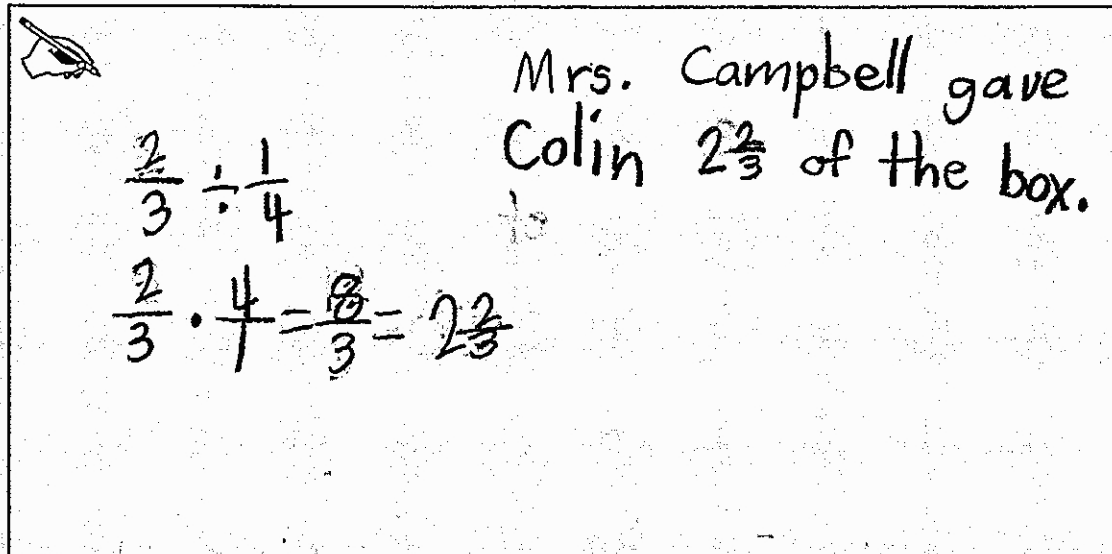 Mrs. Campbell gave
Colin 2 2/3 of the box.
to
2/3 ÷ 1/4
2/3 · 4/1 = 8/3 = 2 2/3